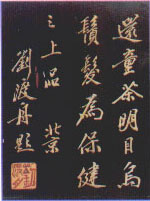 還童茶明目烏
鬚髮為保健
之上品
劉渡舟題